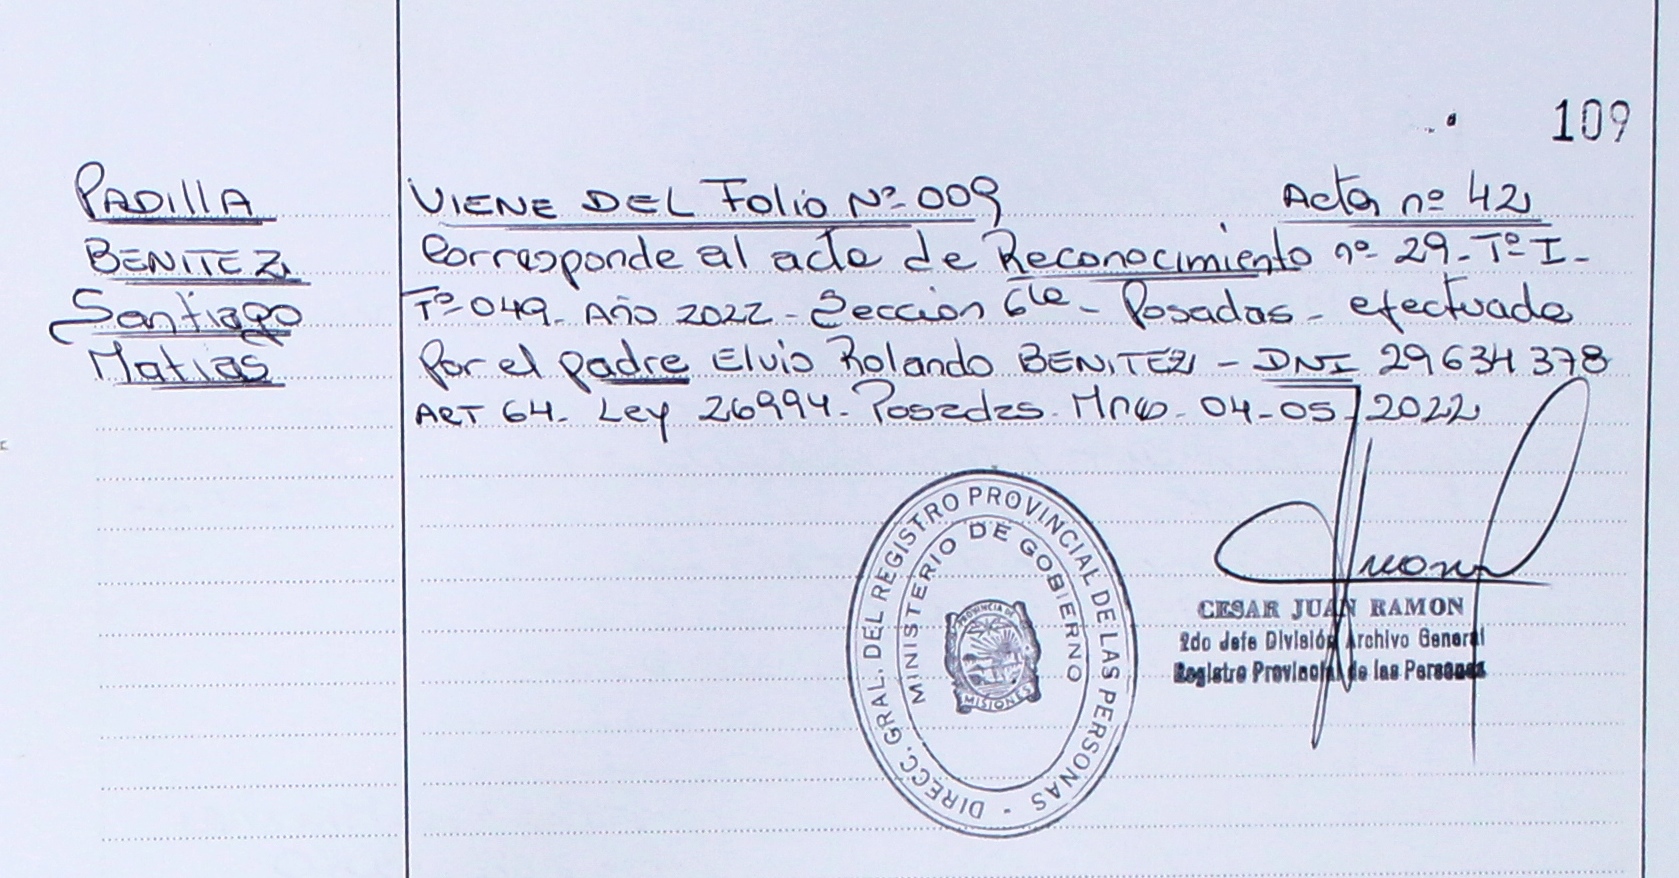 109
PADILLA
BENITEZ
Santiago
Matias
VIENE DEL Folio Nº 009 Acta nº 42
Corresponde al acta de Reconocimiento nº 29 - Tº I -
Tº 049 - Año 2022 - Sección 6ta - Posadas - efectuada
Por el padre Elvio Rolando BENITEZ - DNI 29634378
ART 64 - Ley 26994 - Posadas - Mnes - 04-05-2022
DIRECC. GRAL. DEL REGISTRO PROVINCIAL DE LAS PERSONAS -
MINISTERIO DE GOBIERNO
PROVINCIA DE
MISIONES
CESAR JUAN RAMON
2do Jefe División Archivo General
Registro Provincial de las Personas